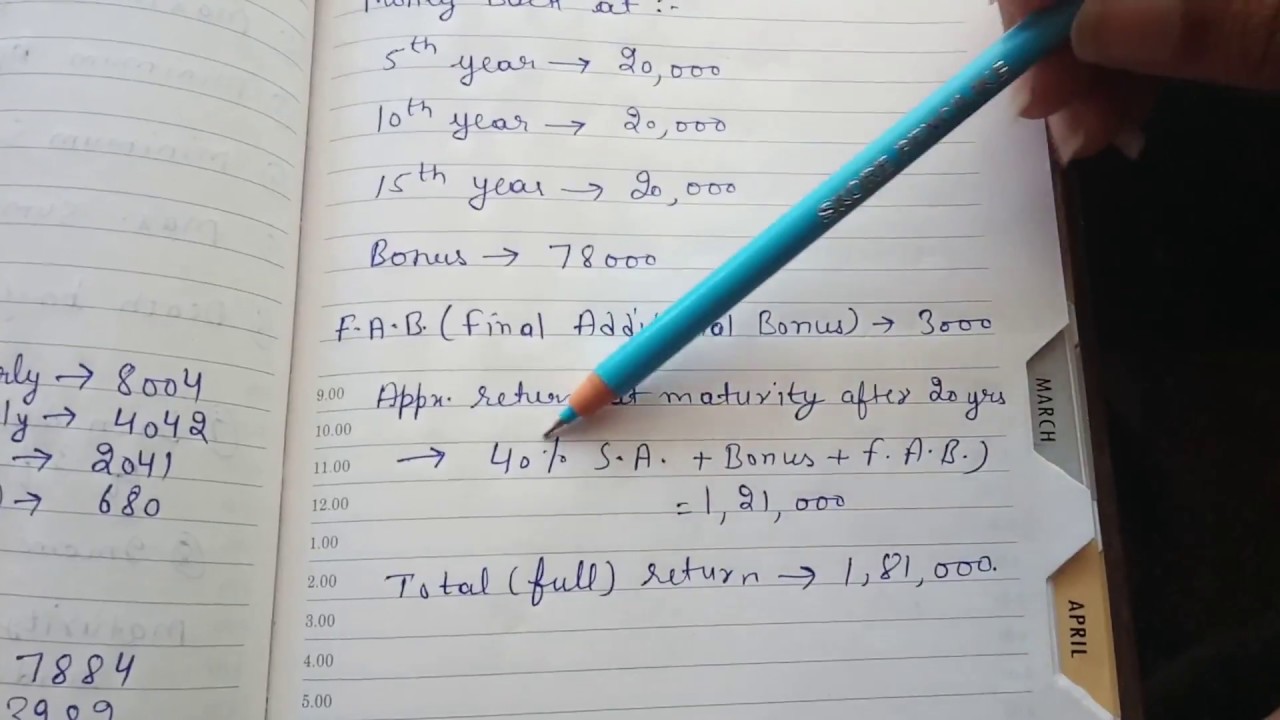 Money Back at :-
5th year → 20,000
10th year → 20,000
15th year → 20,000
Bonus → 78000
F.A.B. (Final Addi al Bonus) → 3000
9.00 Appx. return at maturity after 20 yrs
10.00
11.00 → 40% S.A. + Bonus + F.A.B.)
12.00 = 1,21,000
1.00
2.00 Total (full) return → 1,81,000.
3.00
4.00
5.00
rly → 8004
ly → 4042
→ 2041
) → 680
7884
3909
MARCH
APRIL